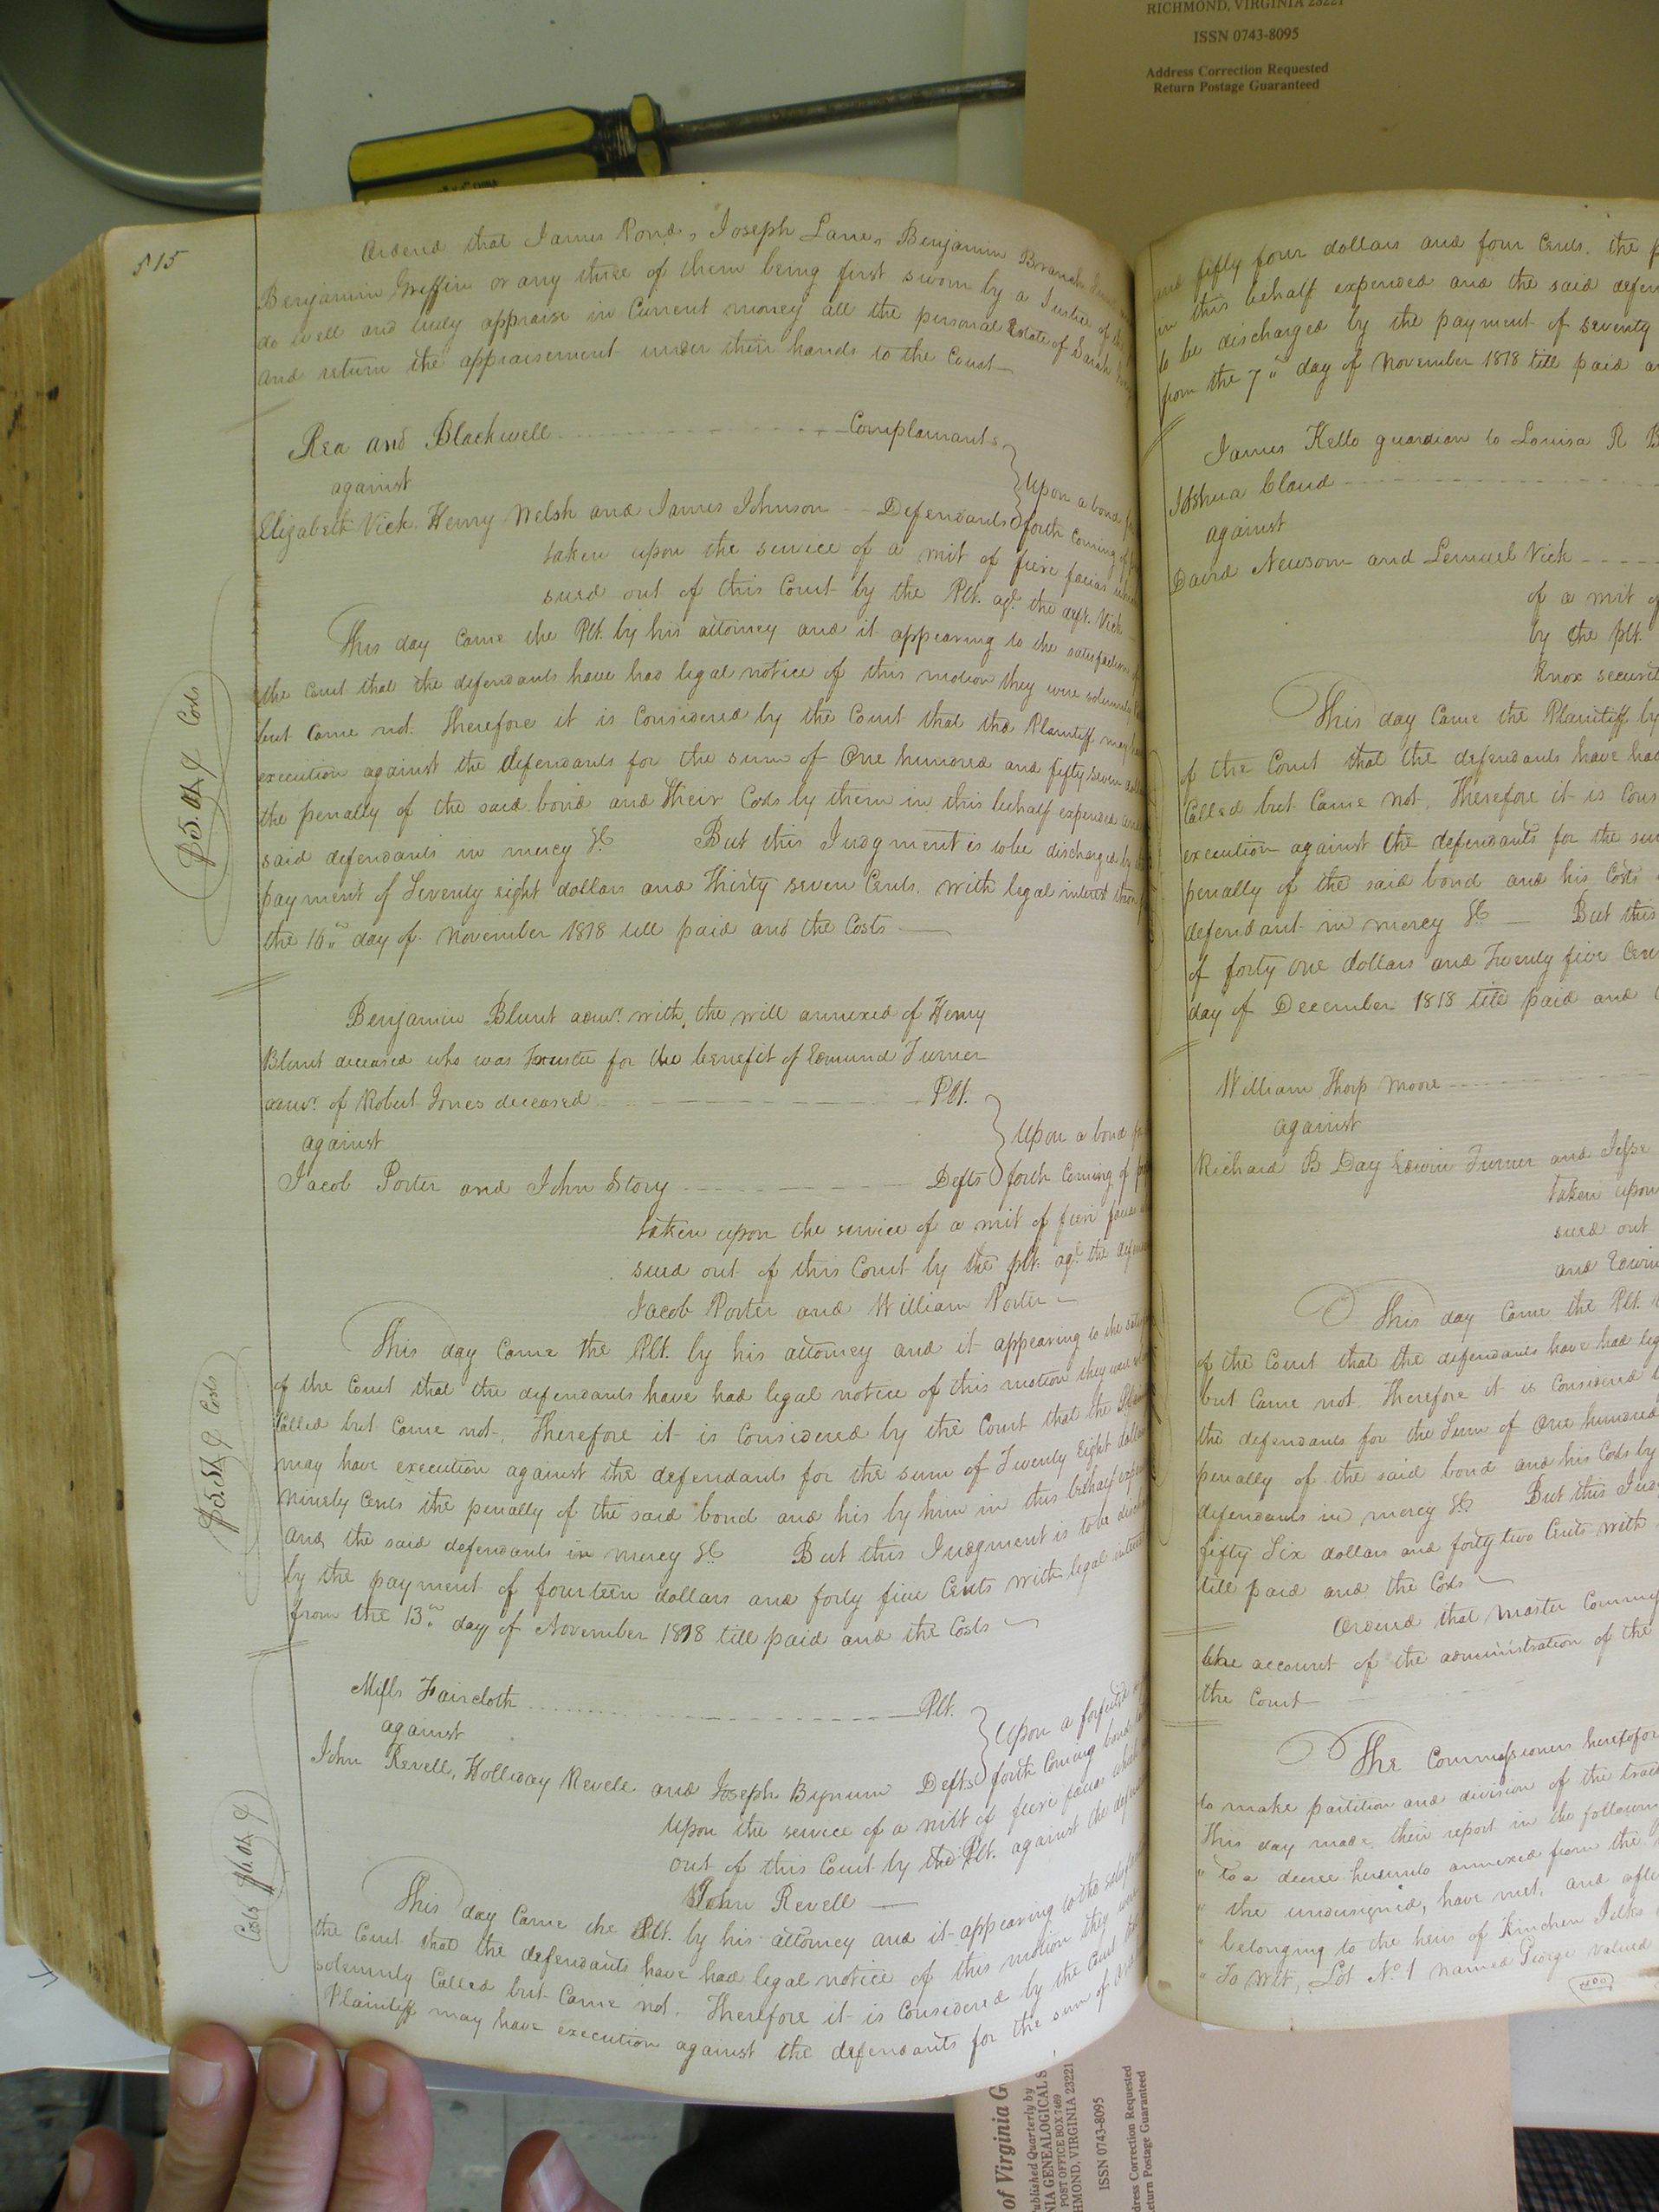 RICHMOND, VIRGINIA 23221
ISSN 0743-8095
Address Correction Requested
Return Postage Guaranteed
515
Ordered that James Pond, Joseph Lane, Benjamin Branch
Benjamin Griffin or any three of them being first sworn by a Justice of
do well and truly appraise in Current money all the personal Estate of Sarah
and return the appraisement under their hands to the Court
Rea and Blackwell Complainants
against
Upon a bond
Elizabeth Vick, Henry Welsh and James Johnson Defendants forth Coming of
taken upon the service of a writ of fiere facias
sued out of this Court by the Plt. agt. the deft. Vick
This day Came the Plt. by his attorney and it appearing to the satisfaction
the Court that the defendants have had legal notice of this motion they were solemnly
but Came not. Therefore it is Considered by the Court that the Plaintiff may
execution against the defendants for the sum of One hundred and fifty seven
the penalty of the said bond and their Costs by them in this behalf expended
said defendants in mercy &C But this Judgment is to be discharged by
payment of Seventy eight dollars and Thirty seven Cents. with legal interest
the 16th day of November 1818 till paid and the Costs
$5.04 Costs
Benjamin Blunt admr. with the will annexed of Henry
Blunt deceased who was Trustee for the benefit of Edmund Turner
admr. of Robert Jones deceased Plt.
against
Upon a bond
Jacob Porter and John Story Defts forth Coming of
taken upon the service of a writ of fieri facias
sued out of this Court by the plt. agt. the
Jacob Porter and William Porter
This day Came the Plt. by his attorney and it appearing to the
of the Court that the defendants have had legal notice of this motion they were
Called but Came not. Therefore it is Considered by the Court that the
may have execution against the defendants for the sum of Twenty Eight dollars
Ninety Cents the penalty of the said bond and his by him in this behalf
and the said defendants in mercy &C But this Judgment is to be
by the payment of fourteen dollars and forty five Cents with legal
from the 13th day of November 1818 till paid and the Costs
Costs
Mills Faircloth Plt.
against
Upon a forfeited
John Revell, Holliday Revell and Joseph Bynum Defts forth Coming bond
Upon the service of a writ of fiere facias
out of this Court by the Plt. against the
John Revell
This day Came the Plt. by his attorney and it appearing to the
the Court that the defendants have had legal notice of this motion they were
solemnly Called but Came not. Therefore it is Considered by the Court
Plaintiff may have execution against the defendants for the sum of
Costs
and fifty four dollars and four Cents. the
in this behalf expended and the said
to be discharged by the payment of seventy
from the 7th day of November 1818 till paid
James Kello guardian to Louisa R
Joshua Claud
against
David Newsom and Lemuel Vick
of a writ
by the plt.
Knox
This day Came the Plaintiff by
of the Court that the defendants have had
Called but Came not. Therefore it is
execution against the defendants for the
penalty of the said bond and his Costs
defendant in mercy &C But this
of forty one dollars and Twenty five
day of December 1818 till paid and
William Thorp Moore
against
Richard B Day Edwin Turner and Jesse
taken upon
sued out
and Edwin
This day Came the Plt.
of the Court that the defendants have had
but Came not. Therefore it is Considered
the defendants for the Sum of One hundred
penalty of the said bond and his Costs by
defendants in mercy &C But this
fifty Six dollars and forty two Cents with
till paid and the Costs
Ordered that Master
the account of the administration of the
the Court
The Commissioners heretofore
to make partition and division of the
This day made their report in the
" To a decree hereunto annexed from the
" the undersigned, have met, and
" belonging to the heirs of Kinchen Jelks
" To Wit, Lot No. 1 named George valued
of Virginia
Published Quarterly by
GENEALOGICAL
POST OFFICE BOX 7469
RICHMOND, VIRGINIA 23221
ISSN 0743-8095
Address Correction Requested
Return Postage Guaranteed